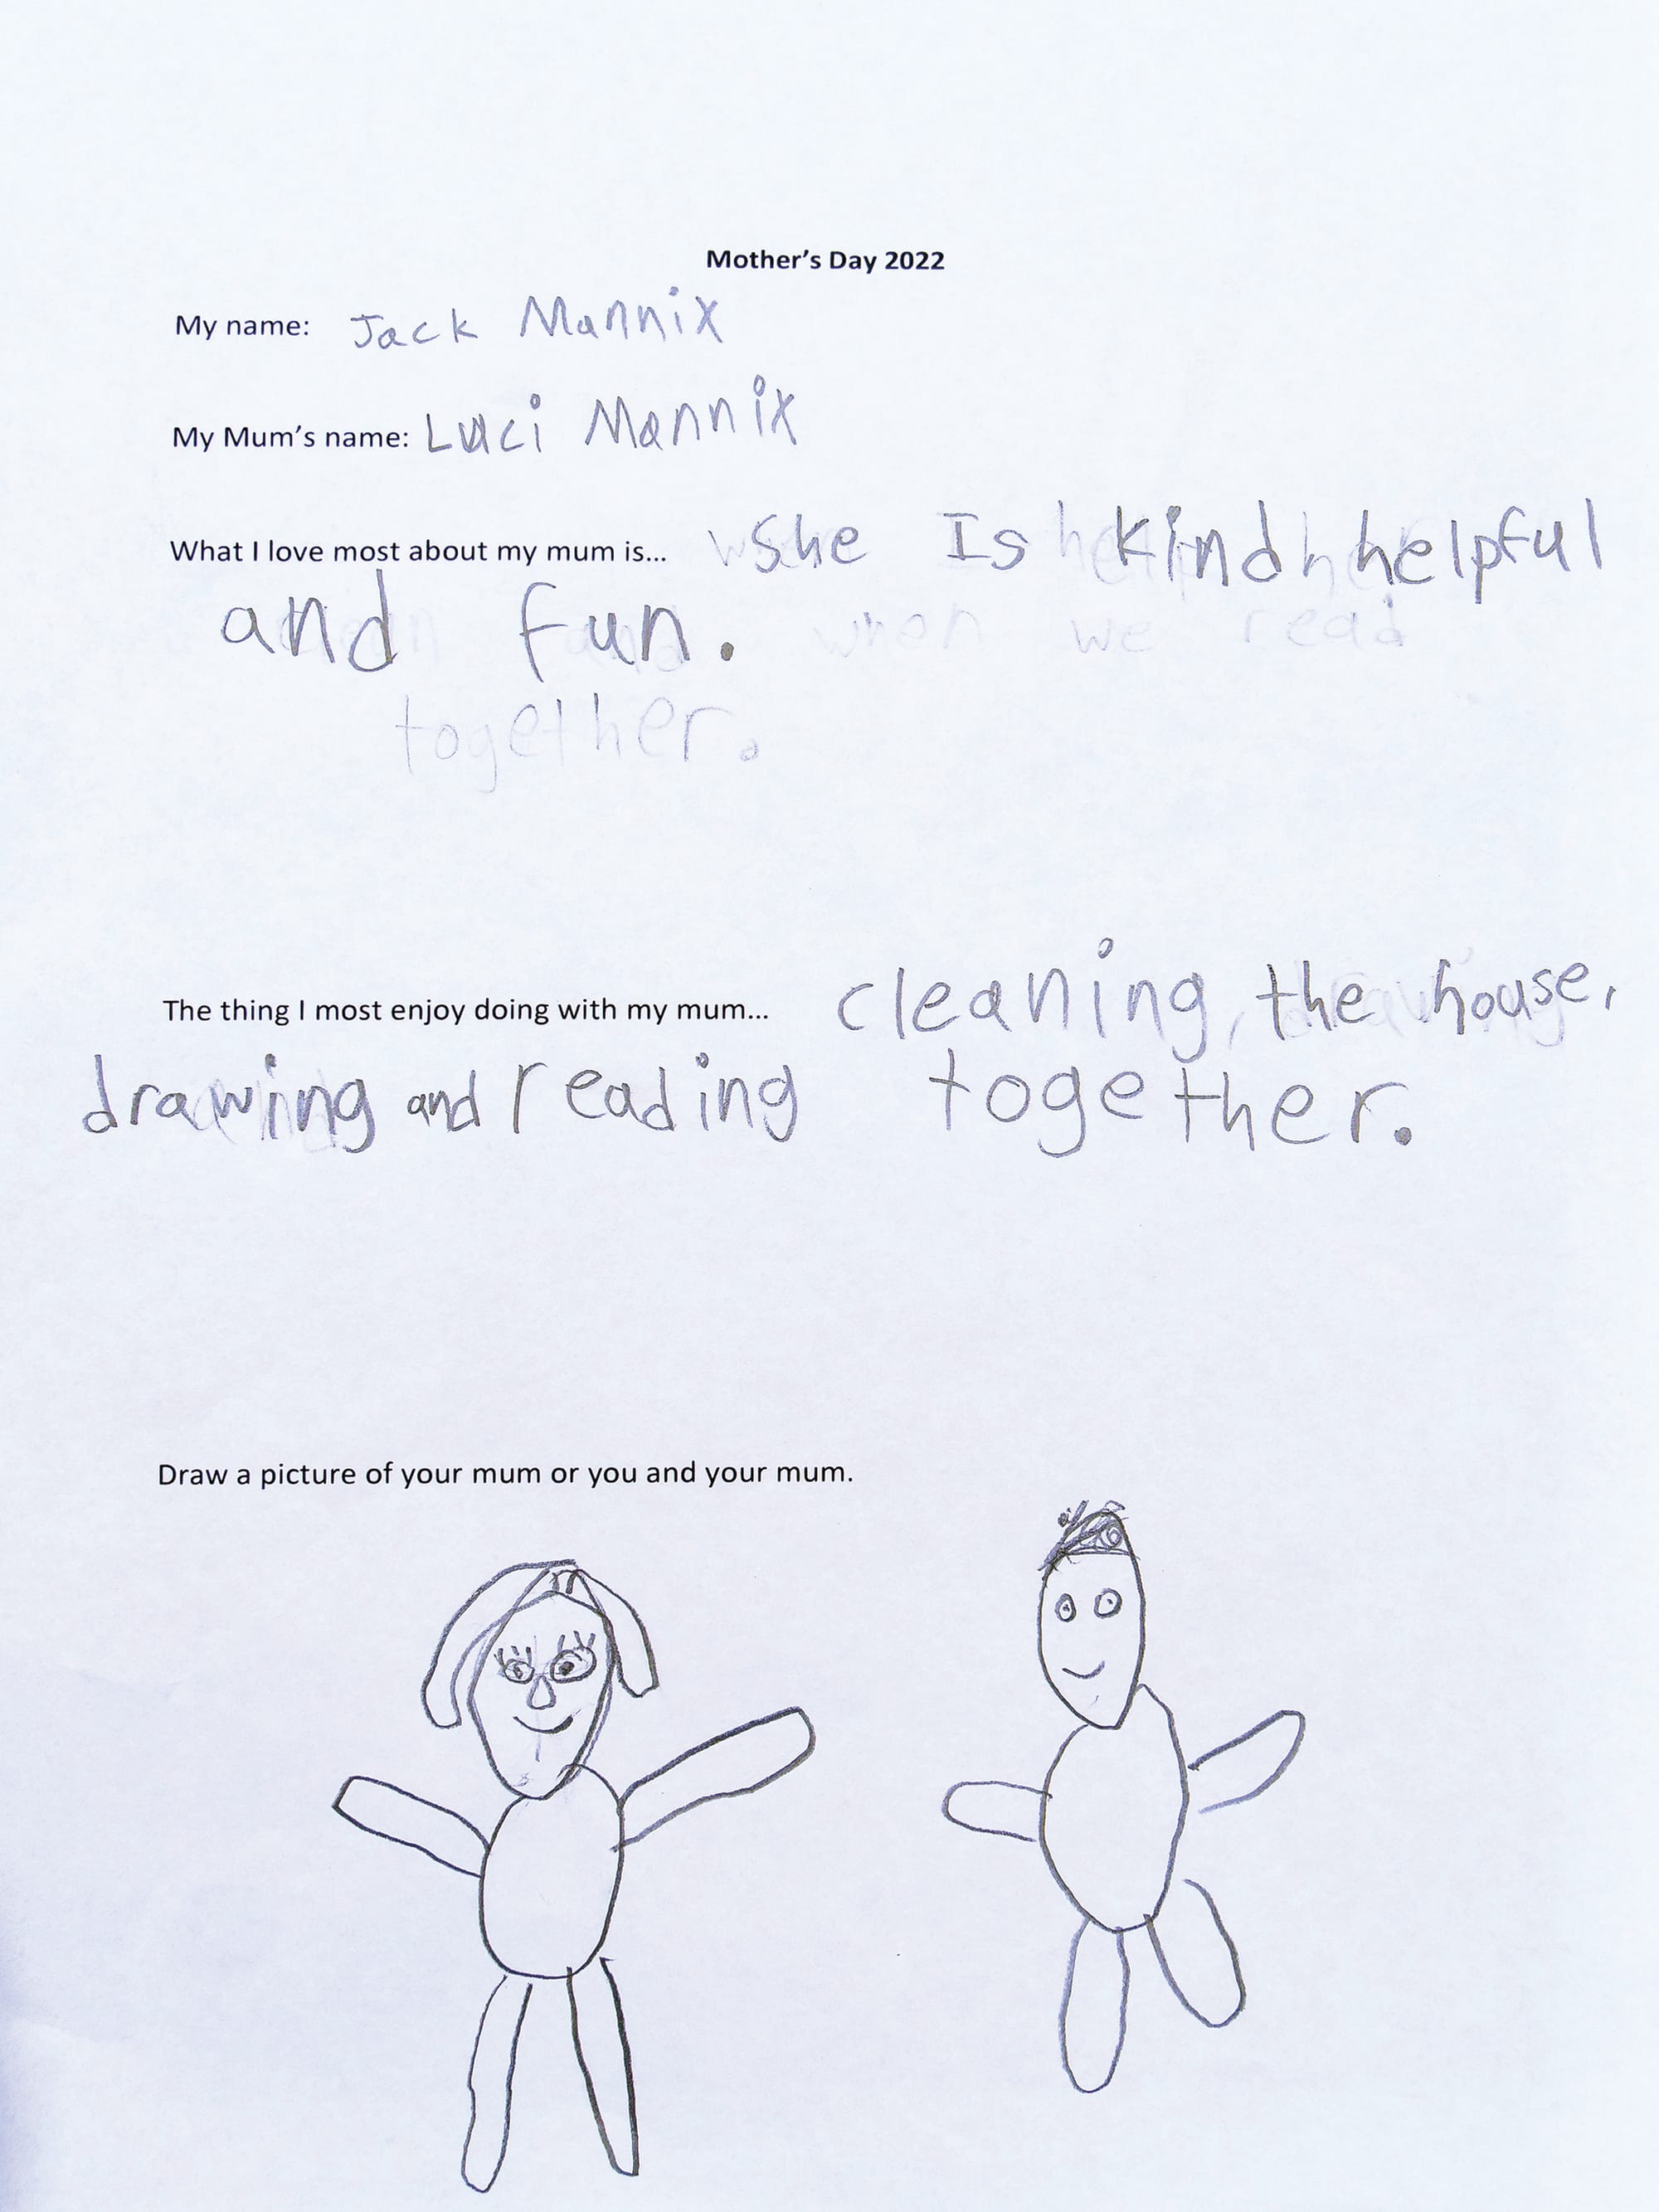 Mother's Day 2022
My name: Jack Mannix
My Mum's name: Luci Mannix
What I love most about my mum is... She Is kind helpful
and fun. when we read
together.
The thing I most enjoy doing with my mum... cleaning, the house,
drawing and reading together.
Draw a picture of your mum or you and your mum.